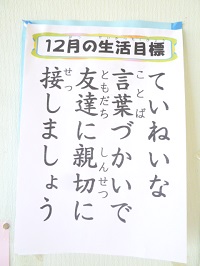 12月の生活目標
ていねいな
言葉づかいで
ことば
友達に親切に
ともだち しんせつ
接しましょう
せっ